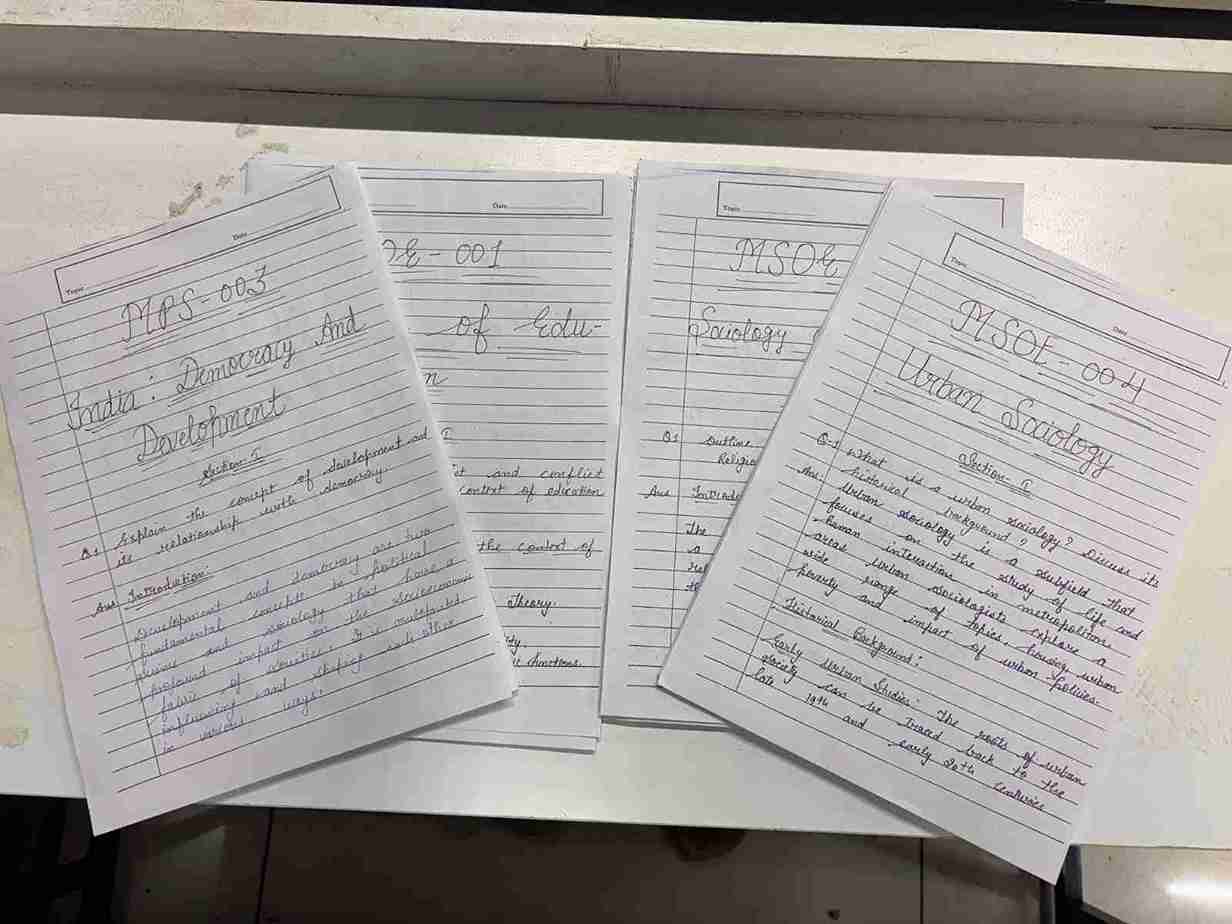 Topic
Date
MPS-003
India: Democracy And
Development
Section-I
Q1 Explain the concept of development and
its relationship with democracy.
Ans Introduction:
Development and democracy are two
fundamental concepts in political
science and sociology that have a
profound impact on the socioeconomic
fabric of
influencing and shaping each other
in various ways.
Date
OE-001
of Edu-
n
I
and conflict
context of education
the context of
Theory.
functions.
Topic
MSOE
Sociology
Q1 Outline
Religio
Ans Introdu
The
a
Topic
Date
MSOE-004
Urban Sociology
Section-I
Q-1 What is a urban sociology? Discuss its
historical background?
Ans. Urban sociology is a subfield that
focuses on the study of life and
human interactions in metropolitan
areas. Urban sociologists explore a
wide range of topics, housing, urban
poverty and impact of urban policies.
Historial Background:
Early Urban Studies: The roots of urban
can be traced back to the
late 19th and early 20th centuries